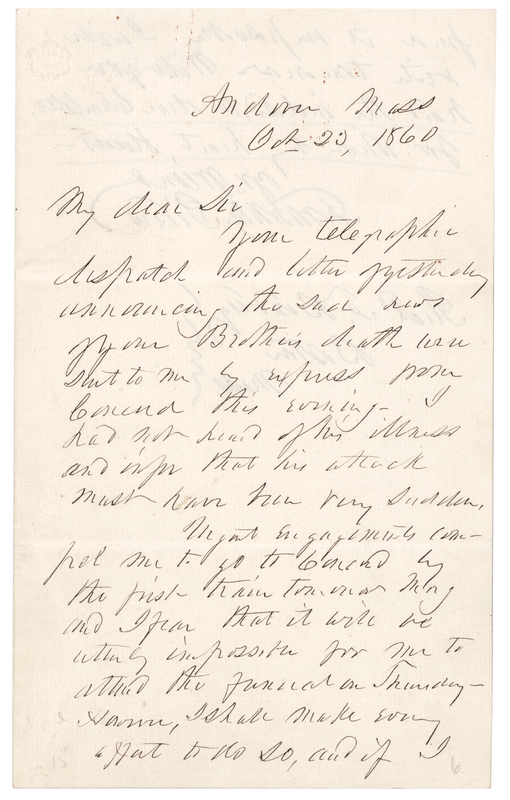 Andover Mass
Oct 23, 1860
My dear Sir
Your telegraphic
dispatch and letter of yesterday
announcing the sad news
of your Brother's death were
sent to me by express from
Concord this evening - I
had not heard of his illness
and infer that his attack
must have been very sudden.
Urgent engagements com-
pel me to go to Concord by
the first train tomorrow Morg
and I fear that it will be
utterly impossible for me to
attend the funeral on Thursday -
However, I shall make every
effort to do so, and if I